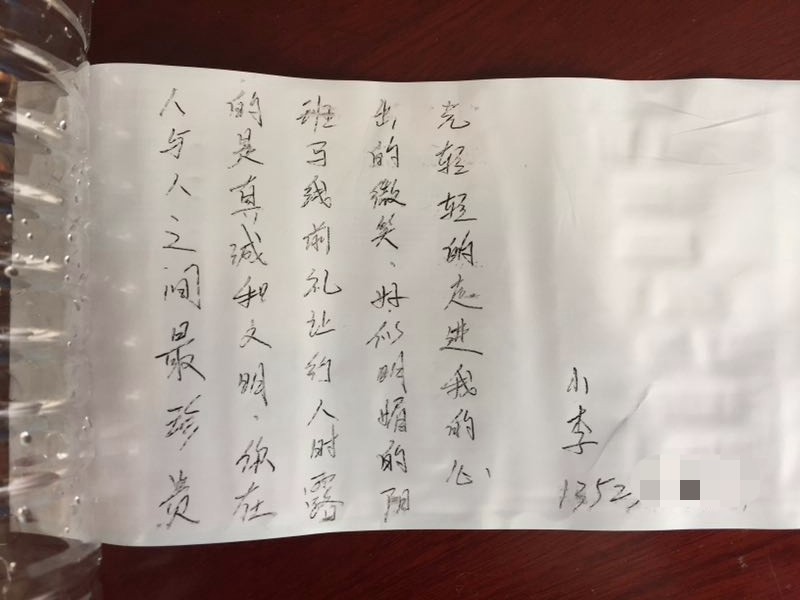 人与人之间最珍贵
的是真诚和文明、你在
班马线前礼让行人时露
出的微笑、好似明媚的阳
光轻轻的走进我的心
小李
1352